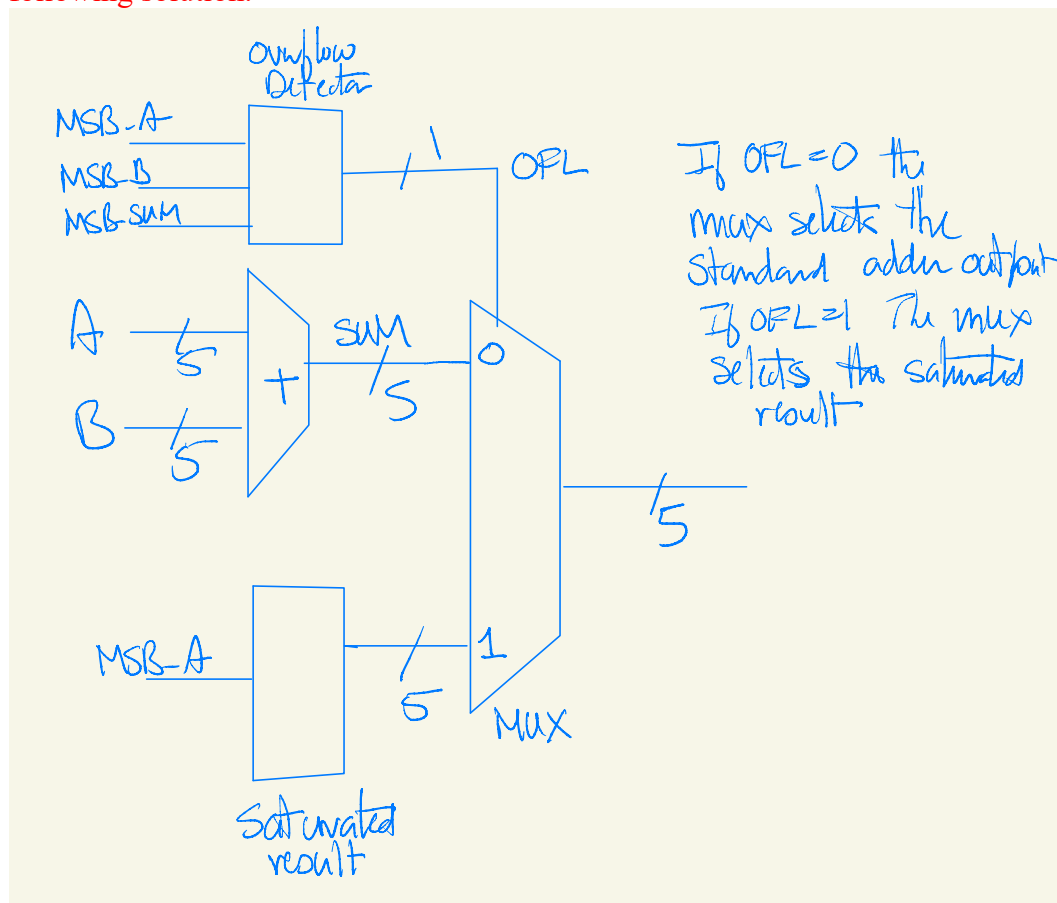 following solution.
Overflow
Detector
MSB_A
MSB_B
MSB_SUM
1
OFL
A
5
B
5
+
SUM
5
0
1
MUX
5
MSB_A
5
Saturated
result
If OFL=0 the
mux selects the
standard adder output
If OFL=1 The mux
selects the saturated
result